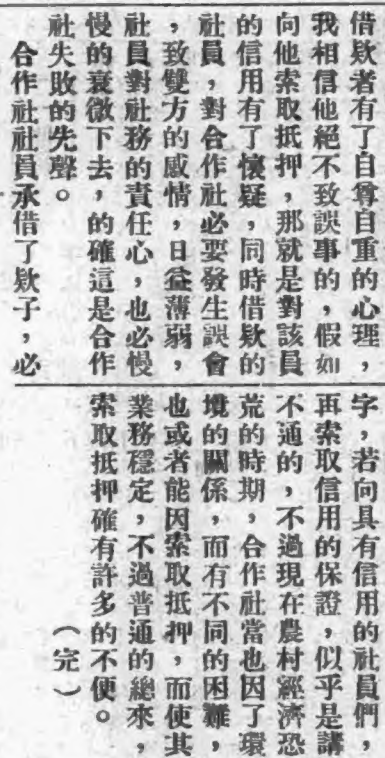 借欵者有了自尊自重的心理，
我相信他絕不致誤事的，假如
向他索取抵押，那就是對該員
的信用有了懷疑，同時借欵的
社員，對合作社必要發生誤會
，致雙方的感情，日益薄弱，
社員對社務的責任心，也必慢
慢的衰微下去，的確這是合作
社失敗的先聲。
合作社社員承借了欵子，必
字，若向具有信用的社員們，
再索取信用的保證，似乎是講
不通的，不過現在農村經濟恐
荒的時期，合作社當也因了環
境的關係，而有不同的困難，
也或者能因索取抵押，而使其
業務穩定，不過普通的總來，
索取抵押確有許多的不便。
（完）